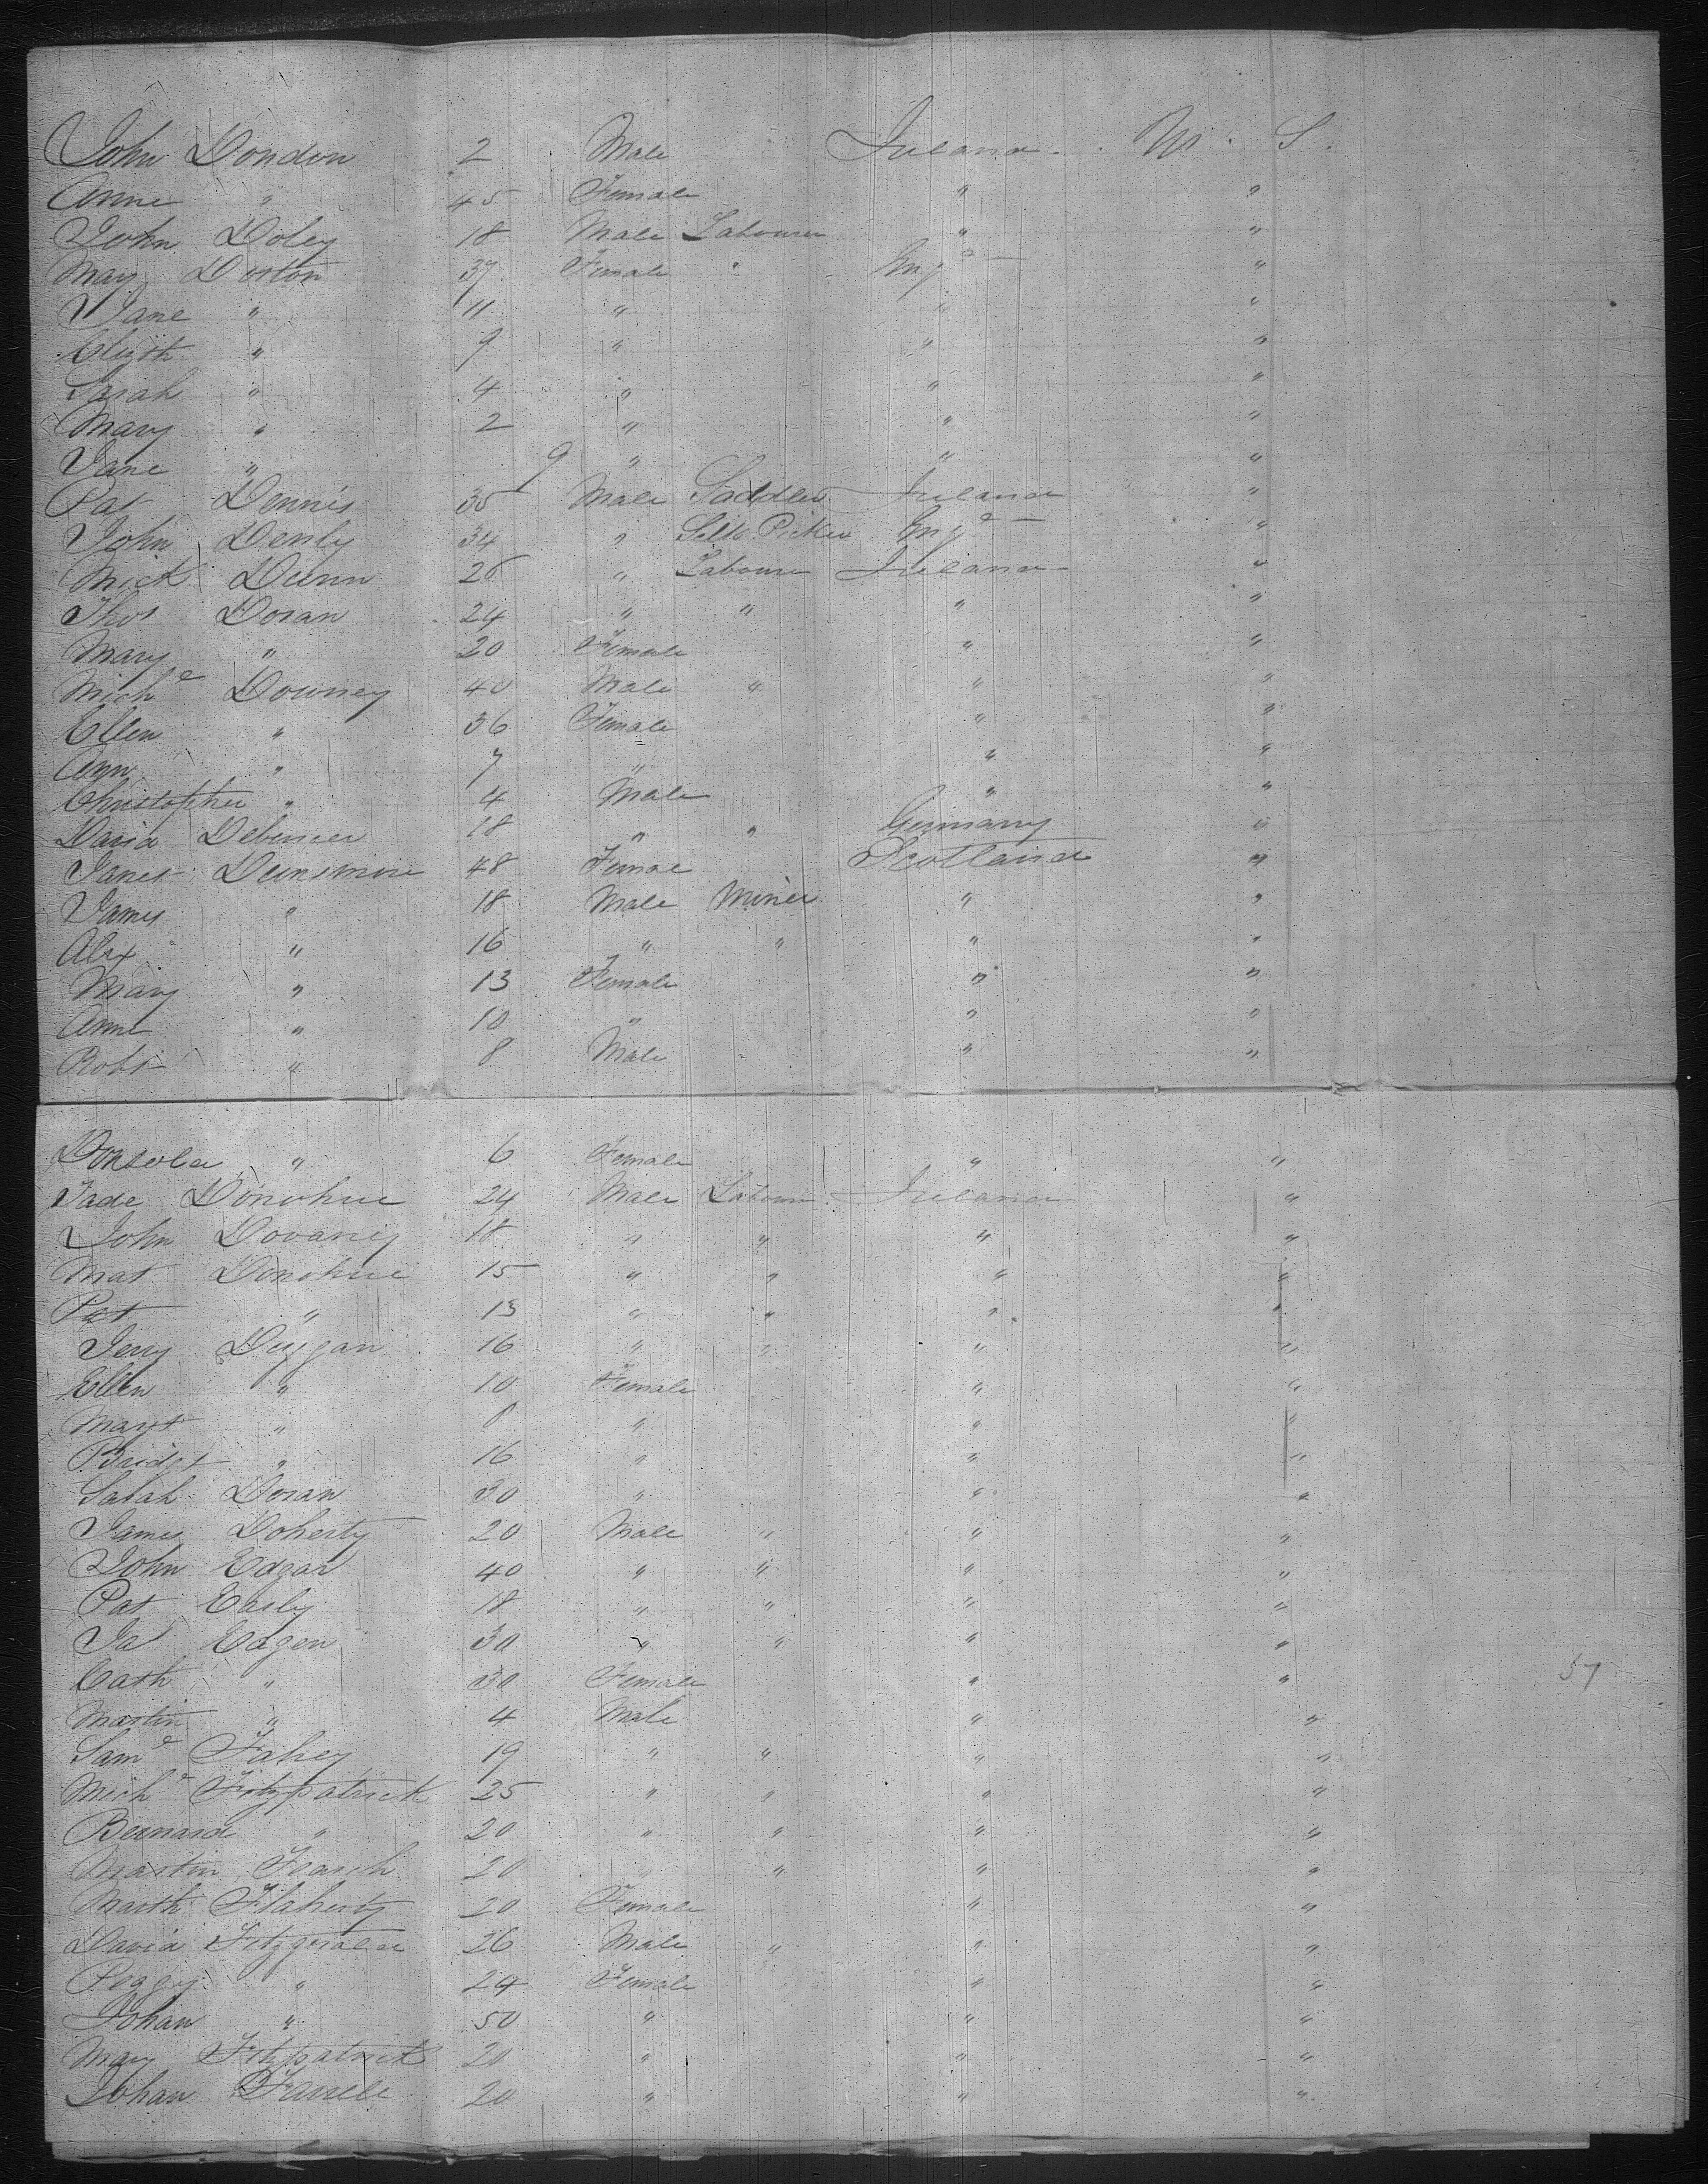 John Dondon 2 Male Ireland . U . S .
Anne " 45 Female " "
John Doley 18 Male Labourer " "
Mary Dorton 37 Female " Engd "
Jane " 11 " " "
Elizth " 9 " " "
Sarah " 4 " " "
Mary " 2 " " "
Jane " 9 " " "
Pat Dennis 35 Male Saddler Ireland "
John Denby 34 " Silk Picker Engd "
Mick Dunn 26 " Labourer Ireland "
Thos Doran 24 " " " "
Mary " 20 Female " "
Michl Downey 40 Male " " "
Ellen " 36 Female " "
Ann " 7 " " "
Christopher " 4 Male " "
David 18 " " Germany "
Janet Dunsmore 48 Female Scotland "
James " 18 Male Miner " "
Alex " 16 " " " "
Mary " 13 Female " "
Anne " 10 " " "
Robt " 8 Male " "
" 6 Female " "
Tade Donohue 24 Male Labour Ireland "
John Dovaney 18 " " " "
Mat Donohue 15 " " " "
Pat " 13 " " " "
Jerry Duggan 16 " " " "
Ellen " 10 Female " "
Margt " 8 " " "
Bridgt " 16 " " "
Sarah Doran 30 " " "
James Doherty 20 Male " " "
John Edgar 40 " " " "
Pat Early 18 " " " "
Jas Eagen 30 " " " "
Cath " 30 Female " " 57
Martin " 4 Male " "
Saml Fahey 19 " " " "
Michl Fitzpatrick 25 " " " "
Bernard " 20 " " " "
Martin 20 " " " "
Marth Flaherty 20 Female " "
David Fitzgerald 26 Male " " "
Peggy " 24 Female " "
Johan " 50 " " "
Mary Fitzpatrick 20 " " "
Johan Farrell 20 " " "